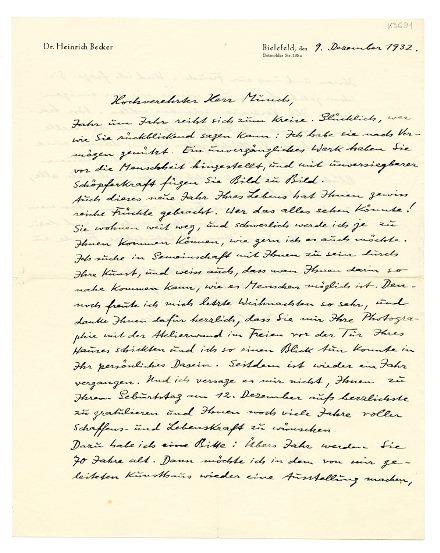 K3691
Dr. Heinrich Becker
Bielefeld, den 9. Dezember 1932.
Detmolder Str.
Hochverehrter Herr Munch,
Jahr um Jahr reiht sich zum Kreise. Glücklich, wer
wie Sie rückblickend sagen kann: Ich habe sie nach Ver-
mögen genützt. Ein unvergängliches Werk haben Sie
vor die Menschheit hingestellt, und mit unversiegbarer
Schöpferkraft fügen Sie Bild zu Bild.
Auch dieses neue Jahr Ihres Lebens hat Ihnen gewiss
reiche Früchte gebracht. Wer das alles sehen könnte!
Sie wohnen weit weg, und schwerlich werde ich je zu
Ihnen kommen können, wie gern ich es auch möchte.
Ich suche in Gemeinschaft mit Ihnen zu sein durch
Ihre Kunst, und weiss auch, dass man Ihnen darin so
nahe kommen kann, wie es Menschen möglich ist. Den-
noch freute ich mich letzte Weihnachten so sehr, und
danke Ihnen dafür herzlich, dass Sie mir Ihre Photogra-
phie mit der Atelierwand im Freien vor der Tür Ihres
Hauses schickten und ich so einen Blick tun konnte in
Ihr persönliches Dasein. Seitdem ist wieder ein Jahr
vergangen. Und ich versage es mir nicht, Ihnen zu
Ihrem Geburtstag am 12. Dezember aufs herzlichste
zu gratulieren und Ihnen noch viele Jahre voller
Schaffens- und Lebenskraft zu wünschen
Dazu habe ich eine Bitte: Übers Jahr werden Sie
70 Jahre alt. Dann möchte ich in dem von mir ge-
leiteten Kunsthaus wieder eine Ausstellung machen,